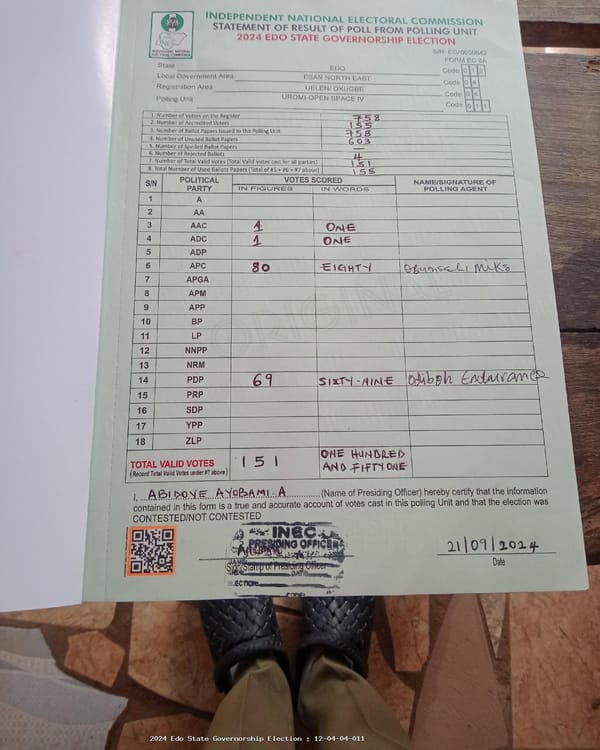 INDEPENDENT NATIONAL ELECTORAL COMMISSION
STATEMENT OF RESULT OF POLL FROM POLLING UNIT
2024 EDO STATE GOVERNORSHIP ELECTION
FORM EC 8A
State EDO Code 0 1 2
Local Government Area ESAN NORTH EAST Code 0 4
Registration Area UELEN/ OKUGBE Code 0 4
Polling Unit UROMI-OPEN SPACE IV Code 0 1 1
1. Number of Voters on the Register 758
2. Number of Accredited Voters 155
3. Number of Ballot Papers Issued to the Polling Unit 758
4. Number of Unused Ballot Papers 603
5. Number of Spoiled Ballot Papers —
6. Number of Rejected Ballots 4
7. Number of Total Valid Votes (Total Valid Votes cast for all parties) 151
8. Total Number of Used Ballots Papers (Total of #5 + #6 + #7 above) 155
S/N POLITICAL PARTY VOTES SCORED IN FIGURES IN WORDS NAME/SIGNATURE OF POLLING AGENT
1 A
2 AA
3 AAC 1 ONE
4 ADC 1 ONE
5 ADP
6 APC 80 EIGHTY
7 APGA
8 APM
9 APP
10 BP
11 LP
12 NNPP
13 NRM
14 PDP 69 SIXTY-NINE Odiboh Endurance
15 PRP
16 SDP
17 YPP
18 ZLP
ORIGINAL
TOTAL VALID VOTES 151 ONE HUNDRED AND FIFTY ONE
(Record Total Valid Votes under #7 above)
I, ABIDOYE AYOBAMI .A (Name of Presiding Officer) hereby certify that the information
contained in this form is a true and accurate account of votes cast in this polling Unit and that the election was
CONTESTED/NOT CONTESTED
INEC
PRESIDING OFFICER
Stamp of Presiding Officer
21/09/2024
Date
2024 Edo State Governorship Election : 12-04-04-011